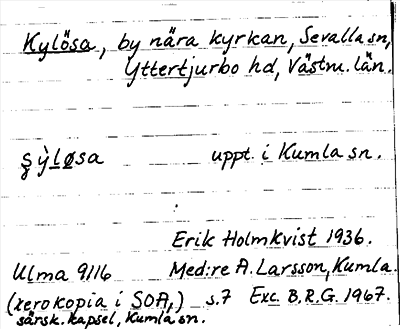 Kylösa, by nära kyrkan, Sevalla sn,
Yttertjurbo hd, Västm. län.
ş̀ỳløsa uppt. i Kumla sn.
Erik Holmkvist 1936.
Ulma 9116 Med:re A. Larsson, Kumla.
(xerokopia i SOA,) s.7 Exc. B.R.G. 1967.
särsk. kapsel, Kumla sn.